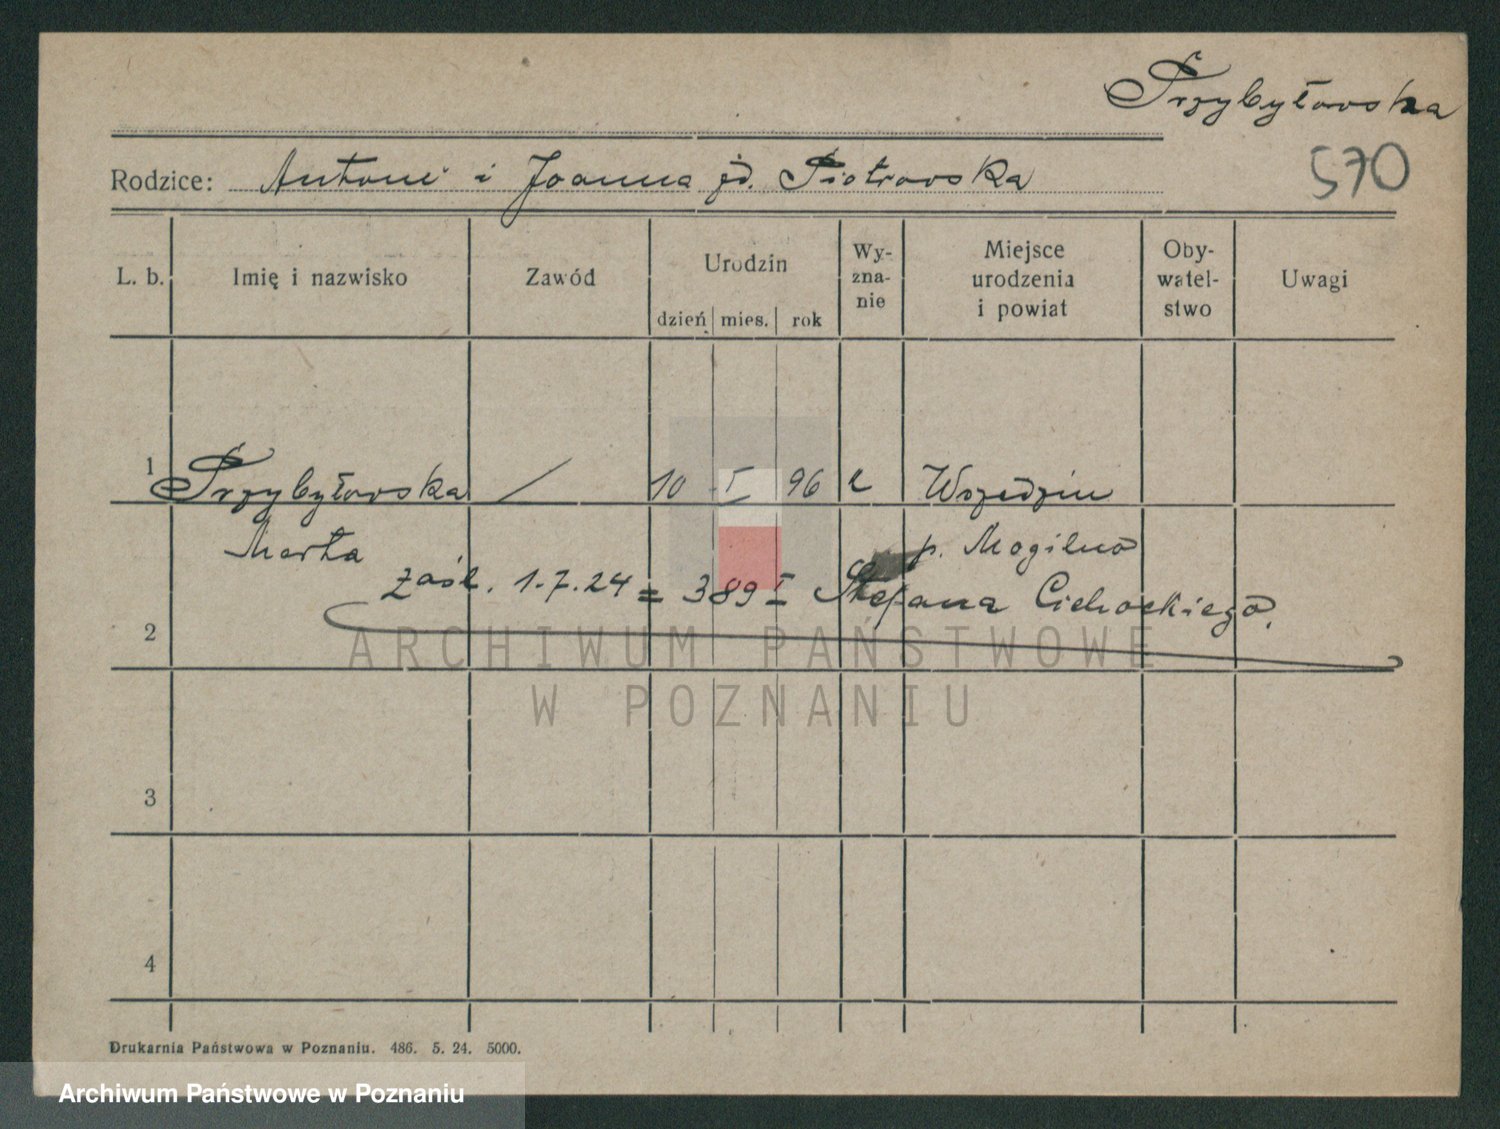 Przybyłowska
570
Rodzice: Antoni i Joanna żd. Piotrowska
L. b. Imię i nazwisko Zawód Urodzin dzień mies. rok Wy-zna-nie Miejsce urodzenia i powiat Oby-watel-stwo Uwagi
1 Przybyłowska / 10 I 96 k Wszedzin
Marta p. Mogilno
zaśl. 1.7.24 = 389 I Stefana Cichockiego.
2
ARCHIWUM PAŃSTWOWE
W POZNANIU
3
4
Drukarnia Państwowa w Poznaniu. 486. 5. 24. 5000.
Archiwum Państwowe w Poznaniu